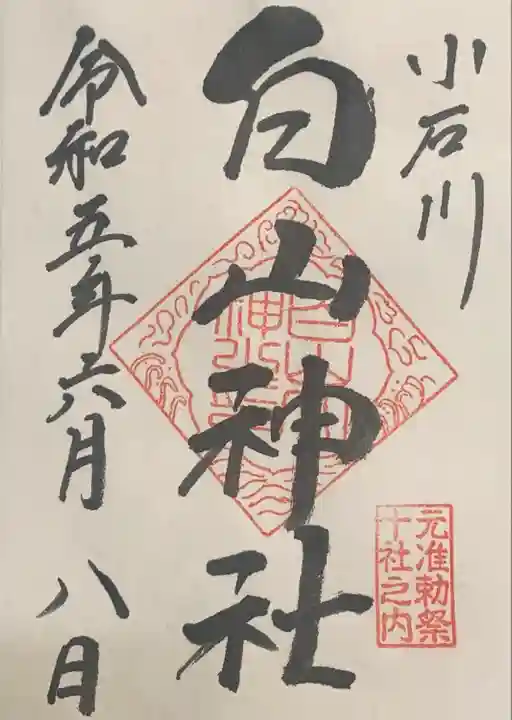 小石川
白山神社
元准勅祭
十社之内
令和五年六月 八日